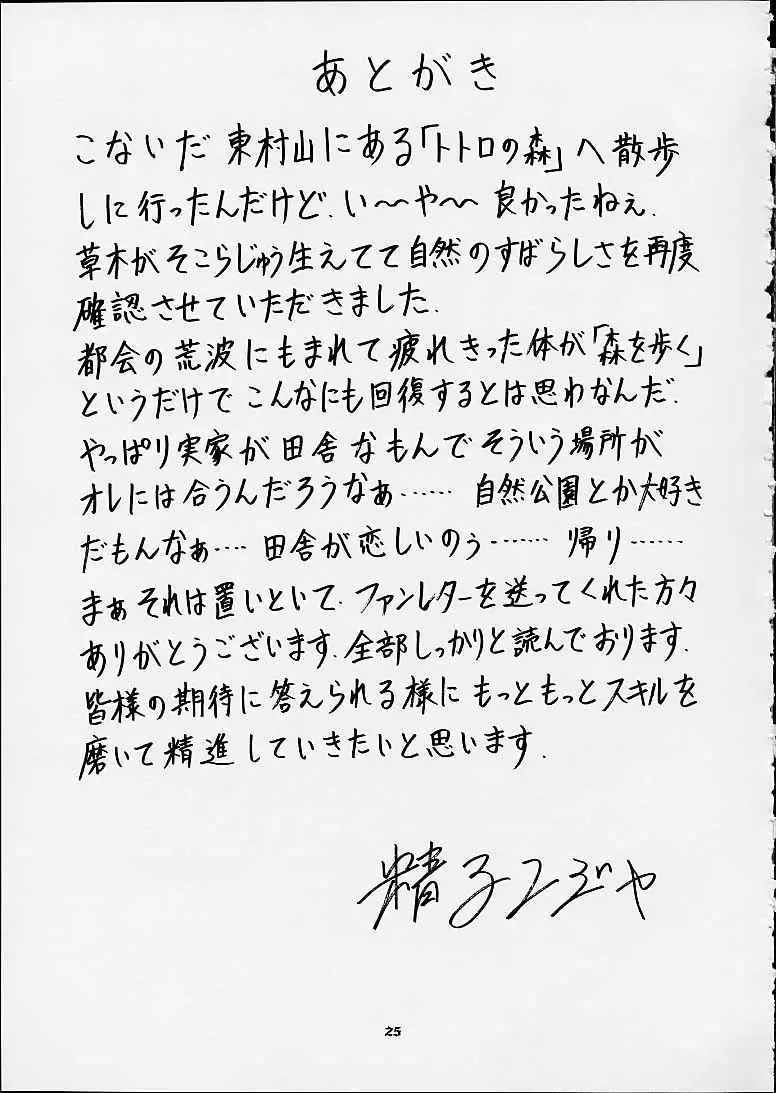 あとがき
こないだ 東村山にある「トトロの森」へ散歩
しに行ったんだけど、い〜や〜 良かったねぇ.
草木がそこらじゅう生えてて自然のすばらしさを再度
確認させていただきました.
都会の荒波にもまれて疲れきった体が「森を歩く」
というだけで こんなにも回復するとは思わなんだ.
やっぱり実家が田舎なもんでそういう場所が
オレには合うんだろうなぁ…… 自然公園とか大好き
だもんなぁ…. 田舎が恋しいのぅ…… 帰り……
まぁそれは置いといて、ファンレターを送ってくれた方々
ありがとうございます. 全部しっかりと読んでおります.
皆様の期待に答えられる様に もっともっとスキルを
磨いて精進していきたいと思います.
25